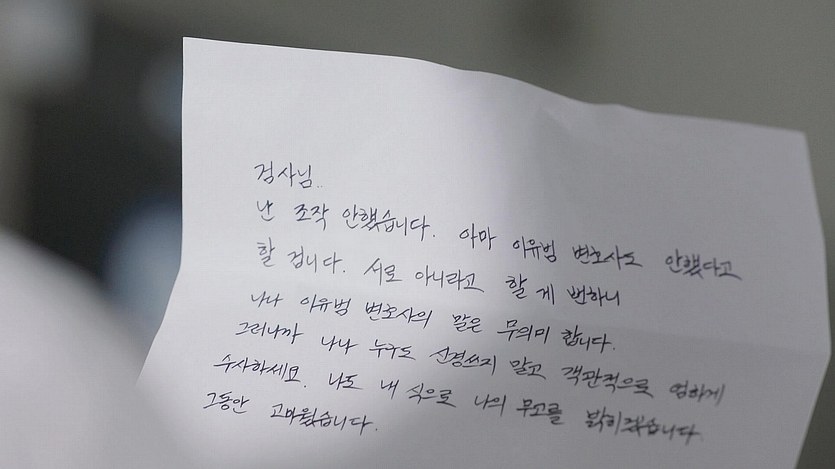 검사님..
난 조작 안했습니다. 아마 이유범 변호사도 안했다고
할 겁니다. 서로 아니라고 할 게 번하니
나나 이유범 변호사의 말은 무의미 합니다.
그러니까 나나 누구도 신경쓰지 말고 객관적으로 엄하게
수사하세요. 나도 내 식으로 나의 무고를 밝히겠습니다.
그동안 고마웠습니다.